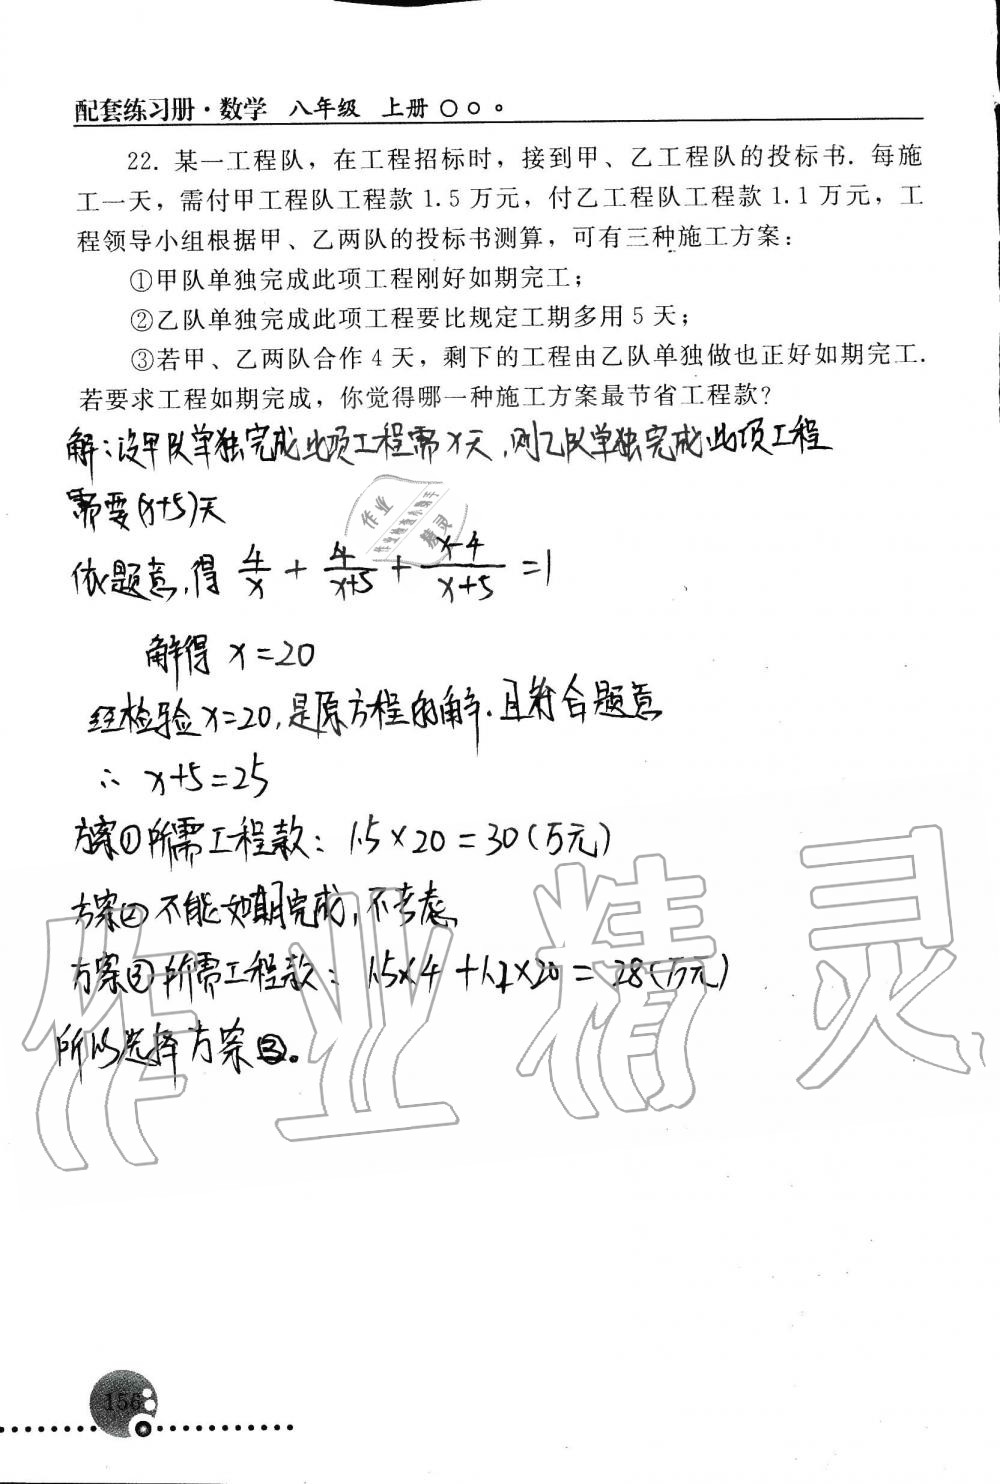 配套练习册·数学 八年级 上册
22. 某一工程队，在工程招标时，接到甲、乙工程队的投标书. 每施
工一天，需付甲工程队工程款 1.5 万元，付乙工程队工程款 1.1 万元，工
程领导小组根据甲、乙两队的投标书测算，可有三种施工方案：
①甲队单独完成此项工程刚好如期完工；
②乙队单独完成此项工程要比规定工期多用 5 天；
③若甲、乙两队合作 4 天，剩下的工程由乙队单独做也正好如期完工.
若要求工程如期完成，你觉得哪一种施工方案最节省工程款？
解：设甲队单独完成此项工程需x天，则乙队单独完成此项工程
需要(x+5)天
作业
精灵
依题意，得 4/x + 4/(x+5) + (x-4)/(x+5) =1
解得 x=20
经检验x=20，是原方程的解，且符合题意
∴ x+5=25
方案①所需工程款：1.5×20=30(万元)
方案②不能如期完成，不考虑
方案③所需工程款：1.5×4+1.1×20=28(万元)
所以选择方案③。
作业精灵
156